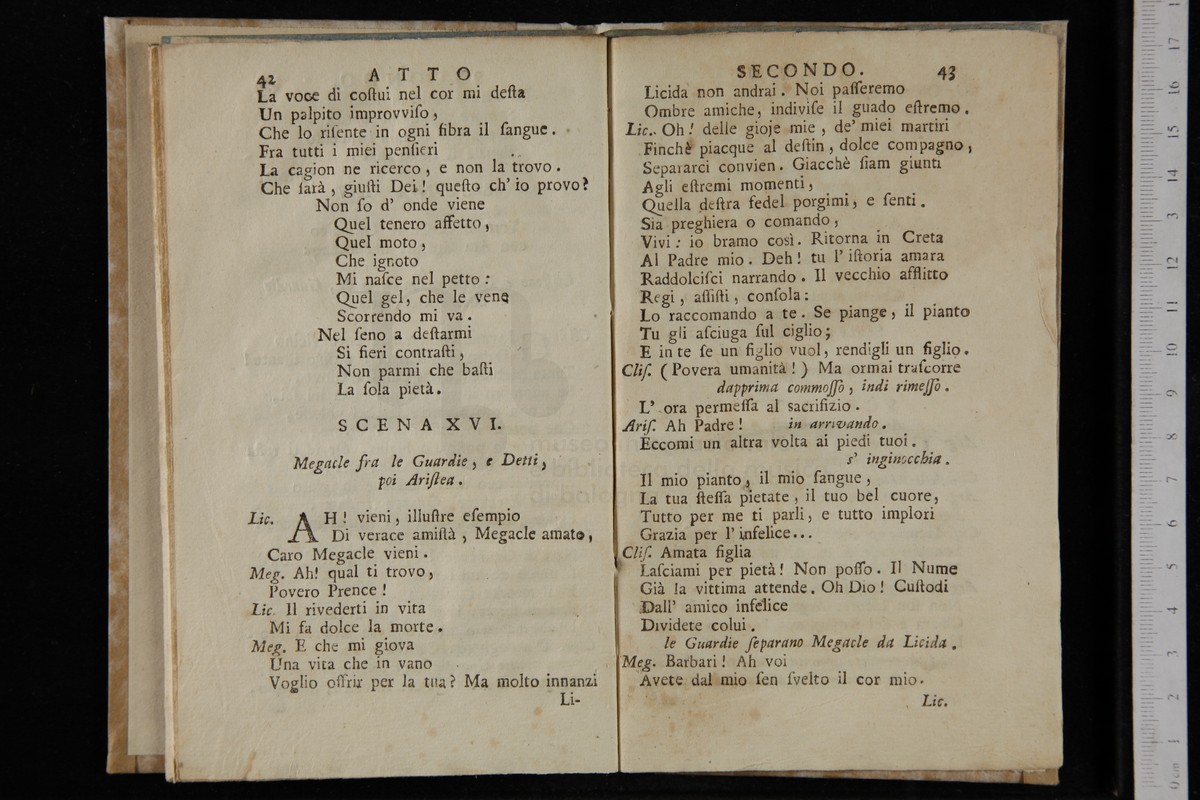 42 ATTO
La voce di coſtui nel cor mi deſta
Un palpito improvviſo,
Che lo riſente in ogni fibra il ſangue.
Fra tutti i miei penſieri
La cagion ne ricerco, e non la trovo.
Che ſarà, giuſti Dei! queſto ch' io provo?
Non ſo d' onde viene
Quel tenero affetto,
Quel moto,
Che ignoto
Mi naſce nel petto:
Quel gel, che le vene
Scorrendo mi va.
Nel ſeno a deſtarmi
Si fieri contraſti,
Non parmi che baſti
La ſola pietà.
SCENA XVI.
Megacle fra le Guardie, e Detti,
poi Ariſtea.
Lic. AH! vieni, illuſtre eſempio
Di verace amiſtà, Megacle amato,
Caro Megacle vieni.
Meg. Ah! qual ti trovo,
Povero Prence!
Lic. Il rivederti in vita
Mi fa dolce la morte.
Meg. E che mi giova
Una vita che in vano
Voglio offrir per la tua? Ma molto innanzi
Li-
SECONDO. 43
Licida non andrai. Noi paſſeremo
Ombre amiche, indiviſe il guado eſtremo.
Lic. Oh! delle gioje mie, de' miei martiri
Finchè piacque al deſtin, dolce compagno,
Separarci convien. Giacchè ſiam giunti
Agli eſtremi momenti,
Quella deſtra fedel porgimi, e ſenti.
Sia preghiera o comando,
Vivi: io bramo così. Ritorna in Creta
Al Padre mio. Deh! tu l' iſtoria amara
Raddolciſci narrando. Il vecchio afflitto
Regi, aſſiſti, conſola:
Lo raccomando a te. Se piange, il pianto
Tu gli aſciuga ſul ciglio;
E in te ſe un figlio vuol, rendigli un figlio.
Cliſ. (Povera umanità!) Ma ormai traſcorre
dapprima commoſſo, indi rimeſſo.
L' ora permeſſa al sacrifizio.
Ariſ. Ah Padre! in arrivando.
Eccomi un altra volta ai piedi tuoi.
s' inginocchia.
Il mio pianto, il mio ſangue,
La tua ſteſſa pietate, il tuo bel cuore,
Tutto per me ti parli, e tutto implori
Grazia per l' infelice...
Cliſ. Amata figlia
Laſciami per pietà! Non poſſo. Il Nume
Già la vittima attende. Oh Dio! Cuſtodi
Dall' amico infelice
Dividete colui.
le Guardie ſeparano Megacle da Licida.
Meg. Barbari! Ah voi
Avete dal mio ſen ſvelto il cor mio.
Lic.